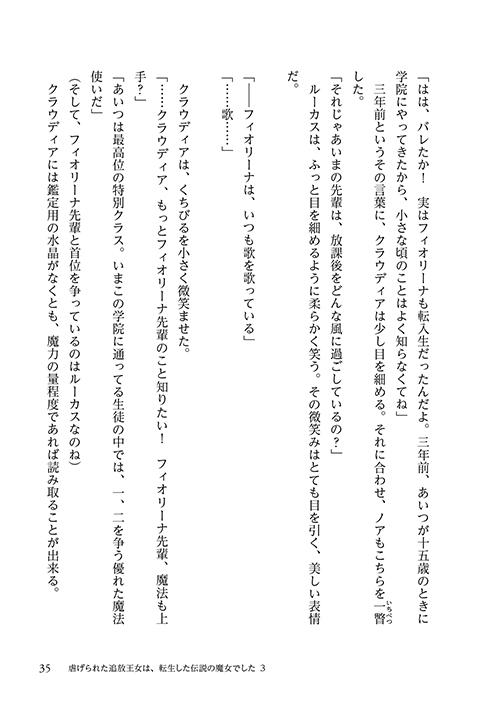 「はは、バレたか！　実はフィオリーナも転入生だったんだよ。三年前、あいつが十五歳のときに
学院にやってきたから、小さな頃のことはよく知らなくてね」
　三年前というその言葉に、クラウディアは少し目を細める。それに合わせ、ノアもこちらを一瞥
いちべつ
した。
「それじゃあいまの先輩は、放課後をどんな風に過ごしているの？」
　ルーカスは、ふっと目を細めるように柔らかく笑う。その微笑みはとても目を引く、美しい表情
だ。
「――フィオリーナは、いつも歌を歌っている」
「……歌……」
　クラウディアは、くちびるを小さく微笑ませた。
「……クラウディア、もっとフィオリーナ先輩のこと知りたい！　フィオリーナ先輩、魔法も上
手？」
「あいつは最高位の特別クラス。いまこの学院に通ってる生徒の中では、一、二を争う優れた魔法
使いだ」
（そして、フィオリーナ先輩と首位を争っているのはルーカスなのね）
　クラウディアには鑑定用の水晶がなくとも、魔力の量程度であれば読み取ることが出来る。
35　虐げられた追放王女は、転生した伝説の魔女でした 3